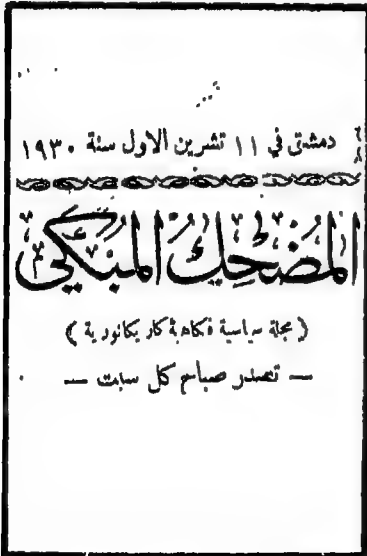 دمشق في ١١ تشرين الاول سنة ١٩٣٠
المُضْحِكُ المُبْكِي
(مجلة سياسية فكاهية كاريكاتورية)
— تصدر صباح كل سبت —